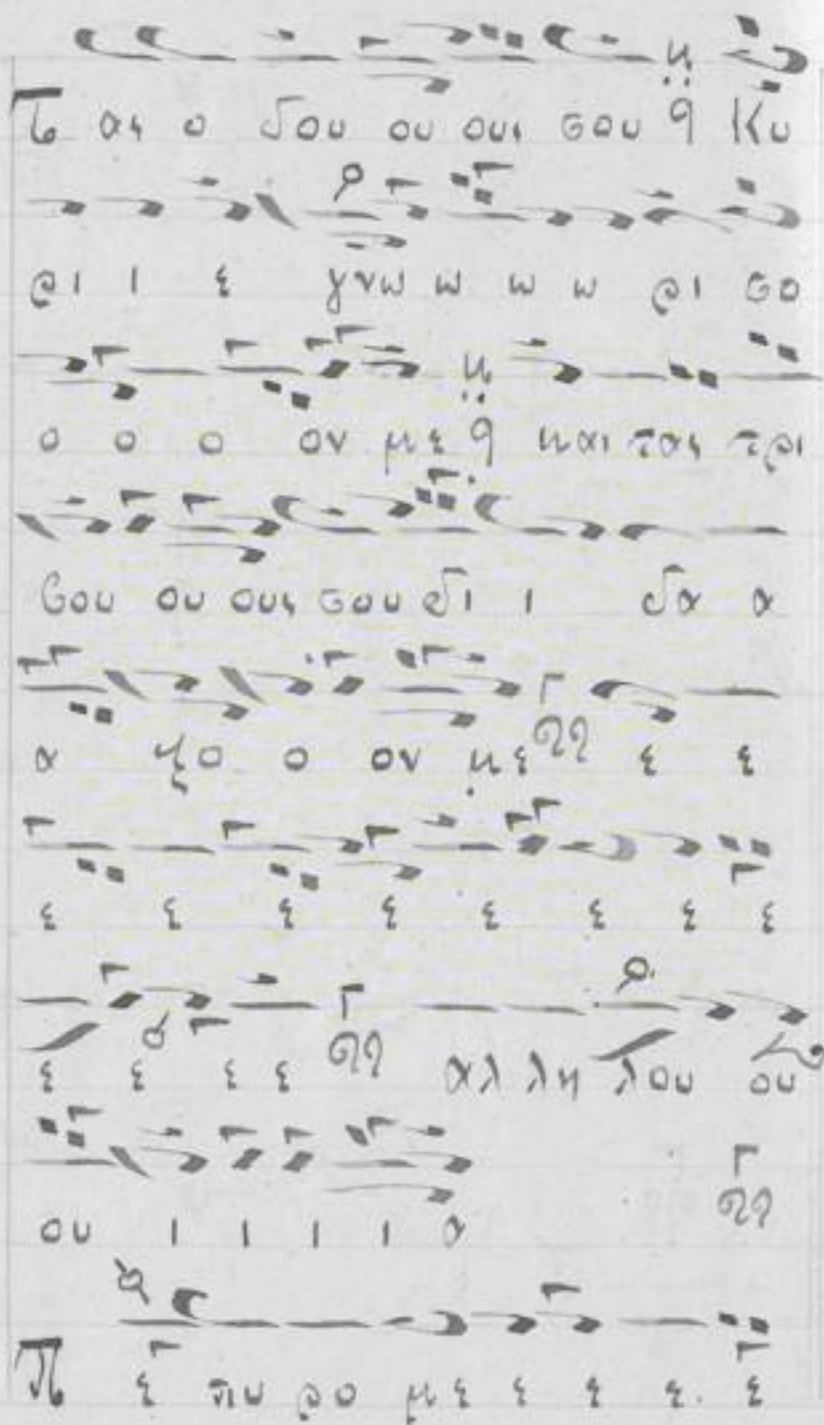 Τ ας ο δου ου ους σου Κυ
ρι ι ε γνω ω ω ω ρι σο
ο ο ο ον με και τας τρι
βου ου ους σου δι ι δα α
α ξο ο ον με ε ε
ε ε ε ε ε ε ε ε
ε ε ε ε αλ λη λου ου
ου ι ι ι ι α
Π ε πυ ρο με ε ε ε ε